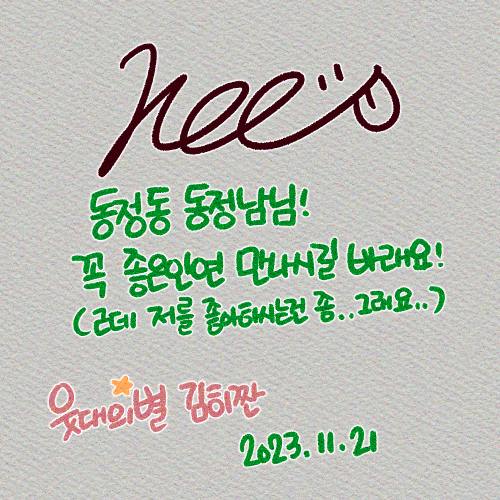 Hee's
동정동 동정남님!
꼭 좋은인연 만나시길 바래요!
(근데 저를 좋아하시는건 좀..그래요..)
웃대의별 김히짠
2023.11.21